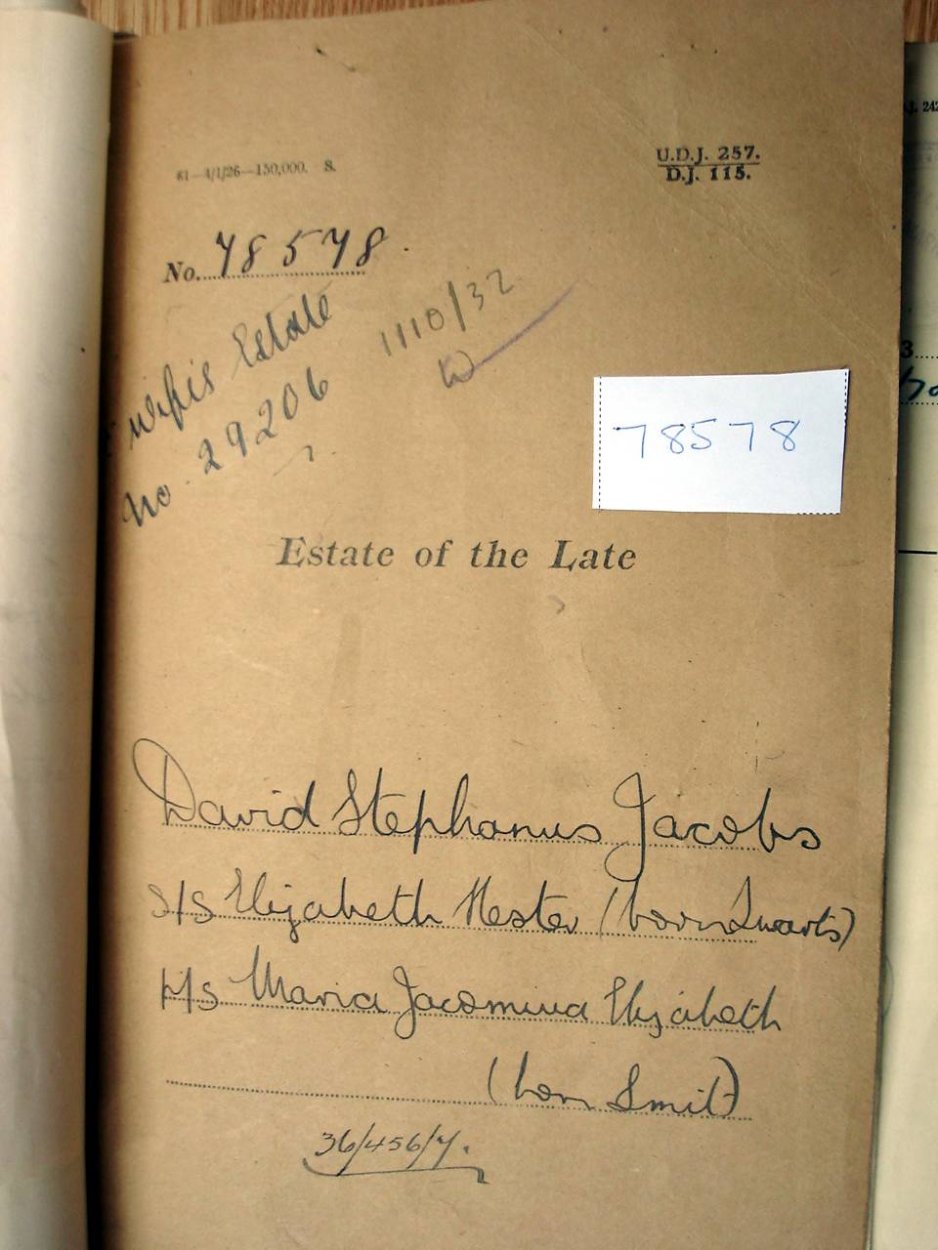 61—4/1/26—150,000. S.
U.D.J. 257.
D.J. 115.
No. 78578
Wifes Estate
No. 29206
1110/32
78578
Estate of the Late
David Stephanus Jacobs
S/S Elizabeth Hester (born Swarts)
Maria Jacomina Elizabeth
(born Smit)
36/456/7.
J. 242
3